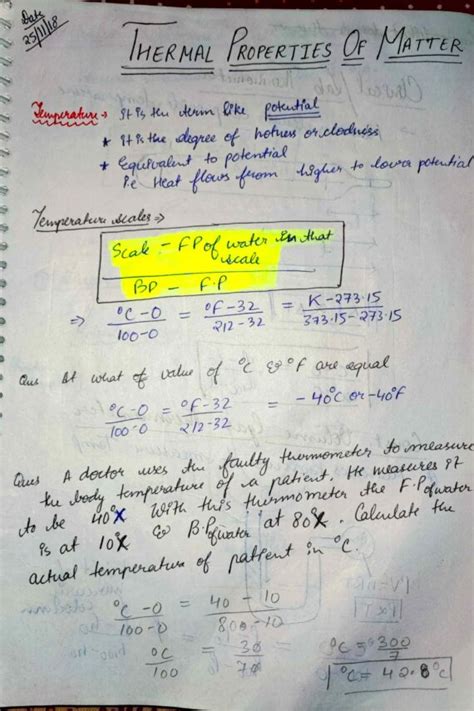 Date
25/11/18
THERMAL PROPERTIES OF MATTER
Temperature → It is the term like potential
* It is the degree of hotness or clodness
* Equivalent to potential
i.e Heat flows from higher to lower potential
Temperature scales ⇒
Scale - FP of water in that
scale
BP - F.P
⇒ °C-0/100-0 = °F-32/212-32 = K-273.15/373.15-273.15
Ques At what of value of °C & °F are equal
°C-0/100-0 = °F-32/212-32 = -40°C or -40°F
Ques A doctor uses the faulty thermometer to measure
the body temperature of a patient. He measures it
to be 40°X With this thermometer the F.P of water
is at 10°X & B.P of water at 80°X. Calculate the
actual temperature of patient in °C.
°C-0/100-0 = 40-10/800-10
°C/100 = 30/70
°C = 300/7
°C = 42.8°C